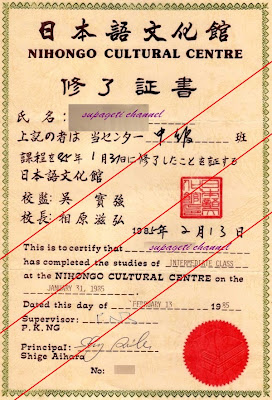 日本語文化館
NIHONGO CULTURAL CENTRE
修了証書
氏名: supageti channel
上記の者は 当センター 中級 班
課程を85年1月31日に修了したことを証する
日本語文化館
校監: 吳 寶強
校長: 相原滋弘
1985年 2月13日
This is to certify that supageti channel
has completed the studies of INTERMEDIATE CLASS
at the NIHONGO CULTURAL CENTRE on the
JANUARY 31, 1985
Dated this day of FEBRUARY 13 1985
Supervisor:
P.K.NG
Principal:
Shige Aihara
No: